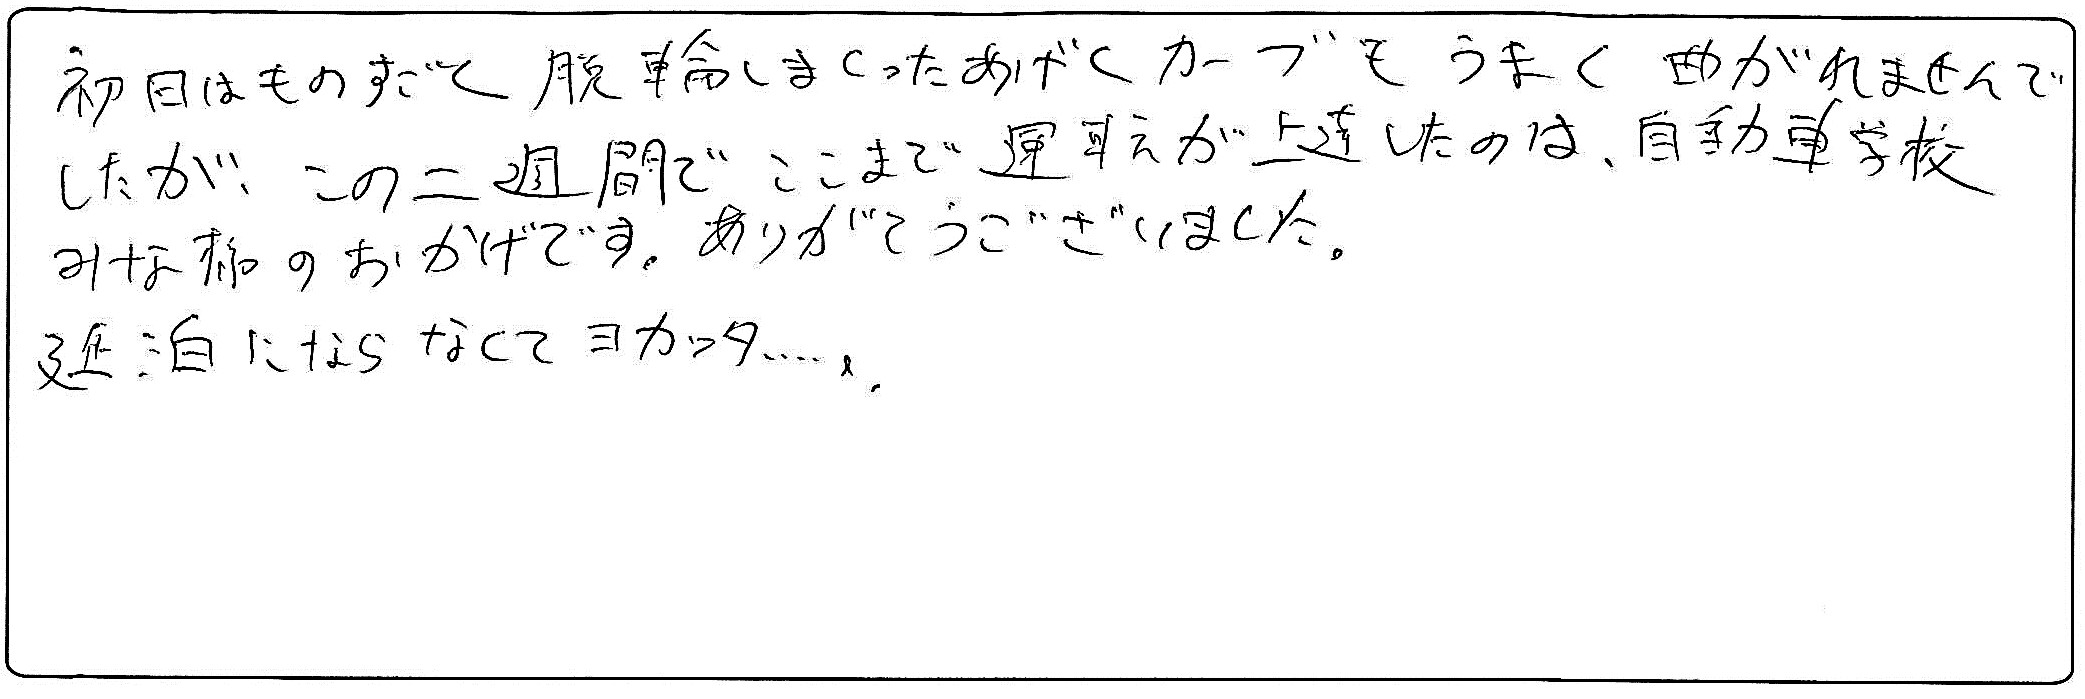 初日はものすごく脱輪しまくったあげくカーブもうまく曲がれませんで
したが、この二週間でここまで運転が上達したのは、自動車学校
みな様のおかげです。ありがとうございました。
延泊にならなくてヨカッタ......